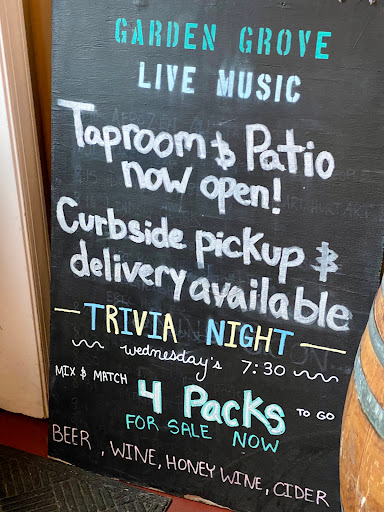 GARDEN GROVE
LIVE MUSIC
Taproom & Patio
now open!
Curbside pickup &
delivery available
TRIVIA NIGHT
wednesday's 7:30
MIX & MATCH 4 Packs TO GO
FOR SALE NOW
BEER, WINE, HONEY WINE, CIDER